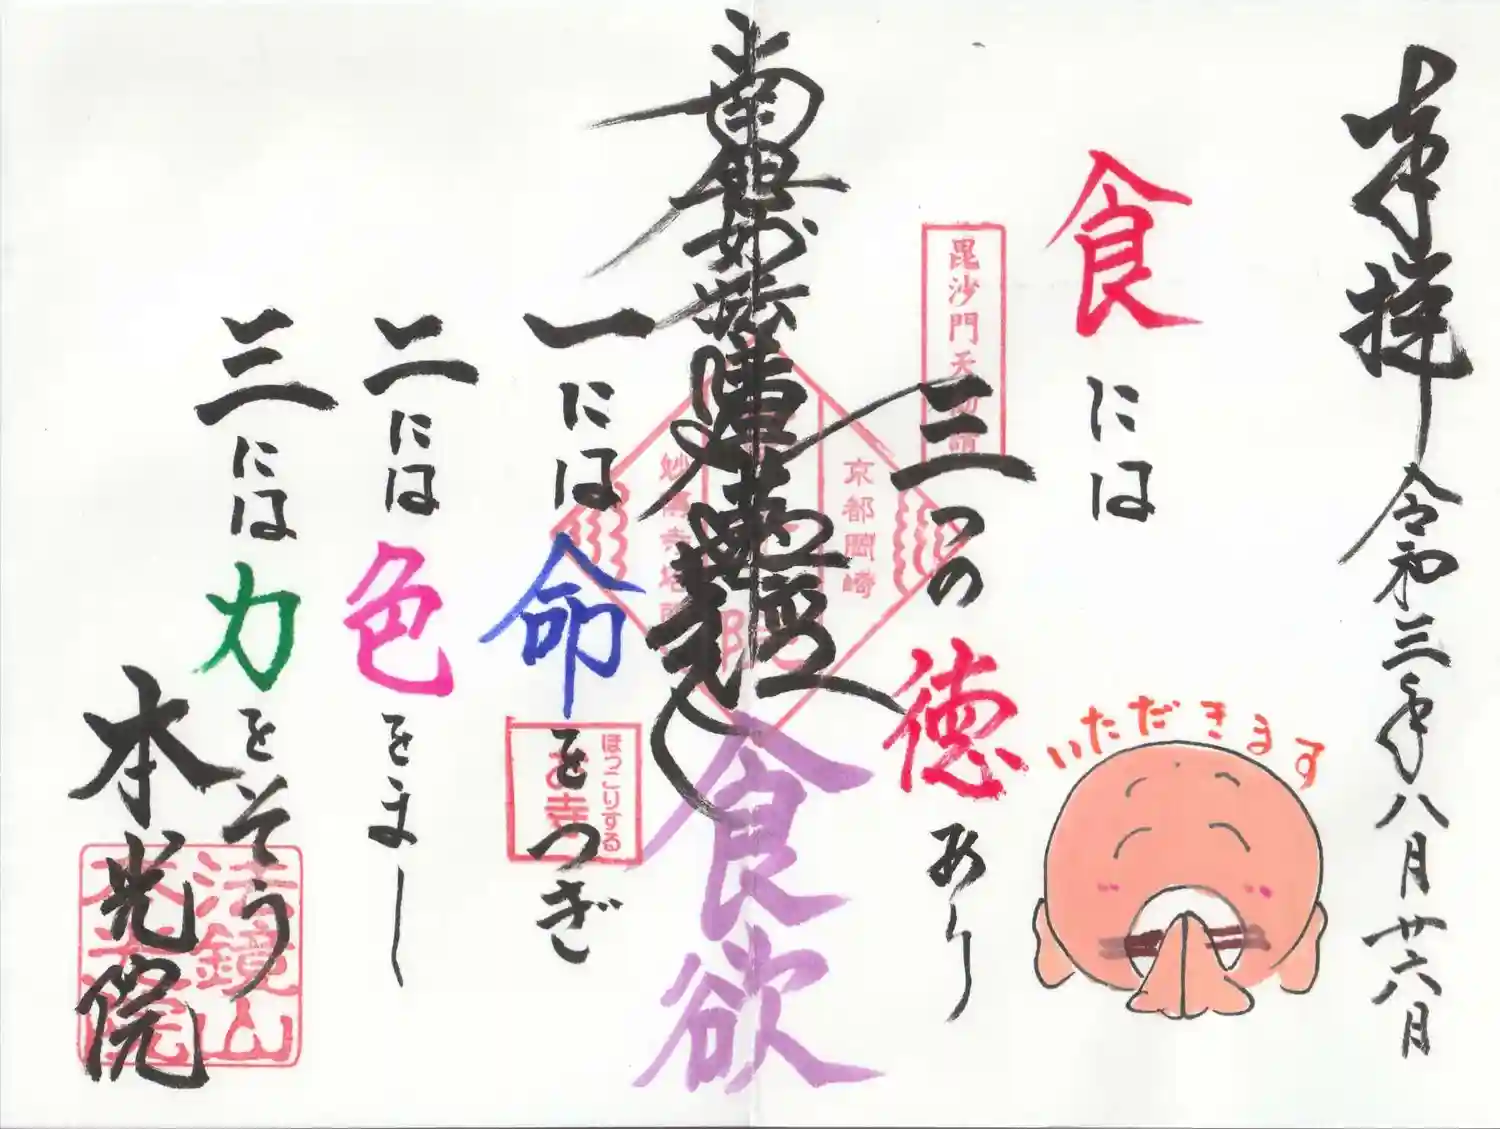 奉拝 令和三年八月廿六月
食には
三つの徳あり
いただきます
毘沙門天勧請
南無妙法蓮華経
食欲
京都岡崎
妙傳寺塔頭
一には命をつぎ
ほっこりする
お寺
二には色をまし
三には力をそう
本光院
法鏡山
本光院